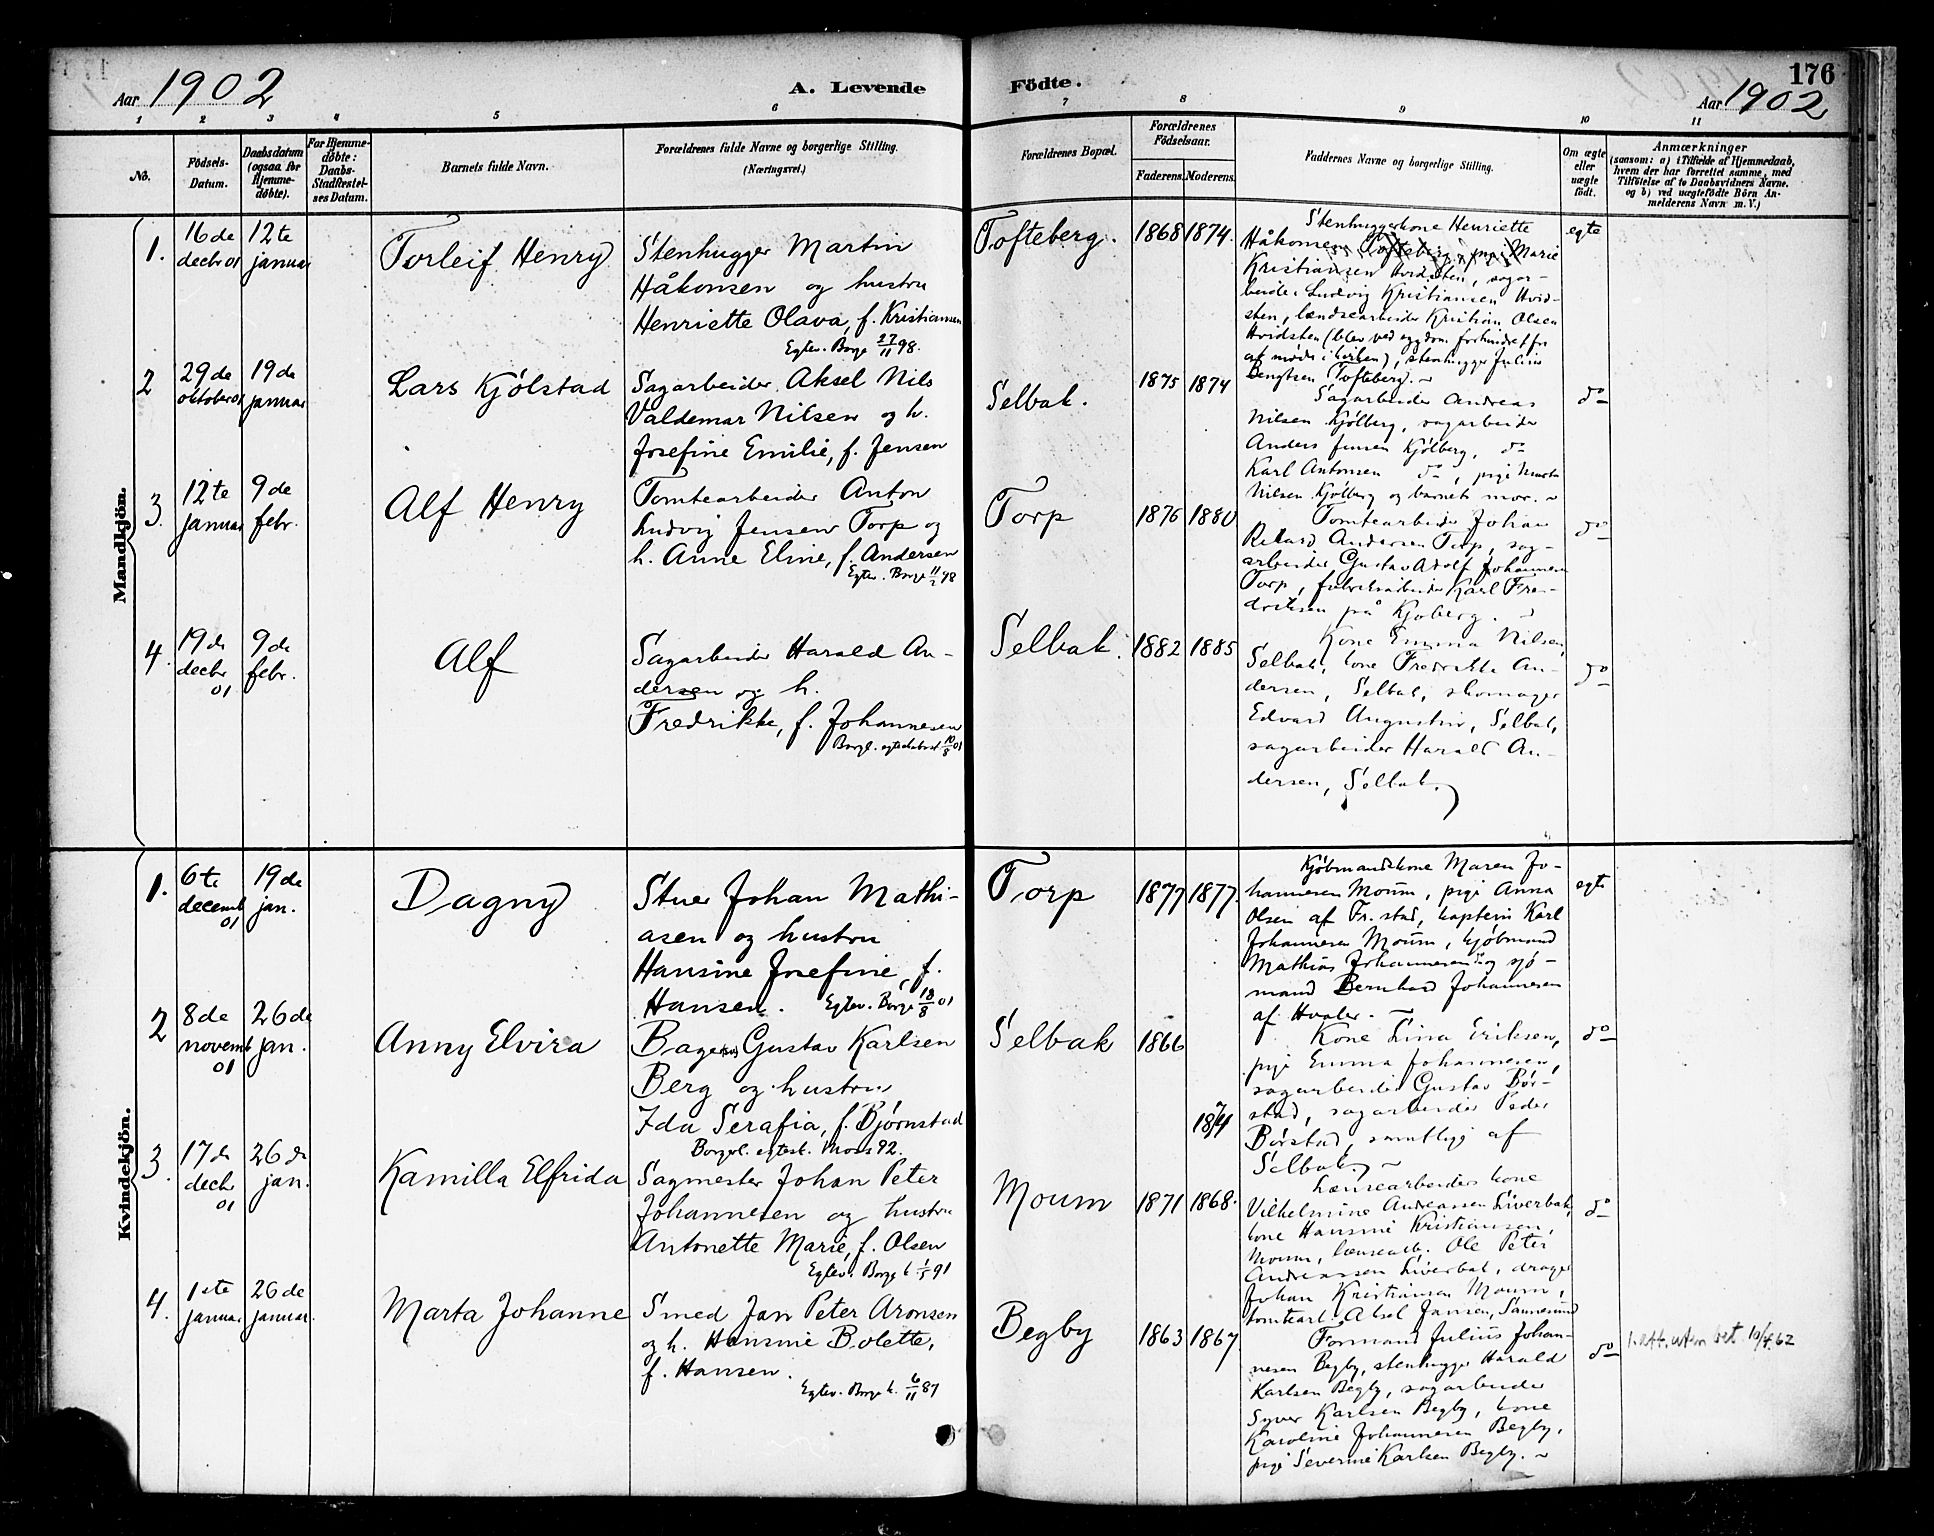 Aar 1902
A. Levende
Födte.
176
Aar 1902
1 2 3 4 5 6 7 8 9 10 11
No.
Födsels-
Datum.
Daabsdatum
(ogsaa for
Hjemme-
døbte).
For Hjemme-
døbte:
Daabs-
Stadfæstel-
ses Datum.
Barnets fulde Navn.
Forældrenes fulde Navne og borgerlige Stilling.
(Næringsvei.)
Forældrenes Bopæl.
Forældrenes
Födselsaar.
Faderens. Moderens.
Faddernes Navne og borgerlige Stilling.
Om ægte
eller
uægte
født.
Anmærkninger
(saasom: a) i Tilfælde af Hjemmedaab,
hvem der har forrettet samme, med
Tilföielse af to Daabsvidners Navne.
og b) ved uægtefödte Börn An-
melderens Navn m. V.)
Mandkjön.
1.
16de
decbr 01
12te
januar
Torleif Henry
Stenhugger Martin
Håkonsen og hustru
Henriette Olava, f. Kristiansen
Egtev. Borge 27/11 98.
Tofteberg.
1868 1874.
Stenhuggerkone Henriette
Håkonsen Tofteberg, pige Marie
Kristiansen Hvidsten, sagar-
beider Ludvig Kristiansen Hvid-
sten, lændsearbeider Kristian Olsen
Hvidsten (blev ved sygdom forhindret fra
at møde i kirken), stenhugger Julius
Bengtsen Tofteberg.
egte
2
29de
oktober 01
19de
januar
Lars Kjölstad
Sagarbeider Aksel Nils
Valdemar Nilsen og h.
Josefine Emilie, f. Jensen
Selbak.
1875 1874
Sagarbeider Andreas
Nilsen Kjølberg, sagarbeider
Anders Jensen Kjølberg, do
Karl Antonsen do, pige Marta
Nilsen Kjølberg og barnets mor.
do
3.
12te
januar
9de
febr.
Alf Henry
Tomtearbeider Anton
Ludvig Jensen Torp og
h. Anne Eline, f. Andersen
Egtev. Borge 11/2 98
Torp
1876 1880
Tomtearbeider Johan
Rikard Andersen Torp, sag-
arbeider Gustav Adolf Johannesen
Torp, fabrikarbeider Karl Fre-
driksen på Kjøberg.
do
4.
19de
decbr
01
9de
febr.
Alf
Sagarbeider Harald An-
dersen og h.
Fredrikke, f. Johannesen
Borgl. egteskab 10/8 01
Selbak.
1882 1885
Kone Emma Nilsen,
Selbak, kone Fredrikke An-
dersen, Selbak, skomager
Edvard Augustin, Selbak,
sagarbeider Harald An-
dersen, Selbak.
do
Kvindekjön.
1.
6te
decemb
01
19de
jan.
Dagny
Stuer Johan Mathi-
asen og hustru
Hansine Josefine, f.
Hansen. Egtev. Borge 18/8 01
Torp
1877 1877.
Kjøbmandskone Maren Jo-
hannesen Moum, pige Anna
Olsen af Fr.stad, kaptein Karl
Johannesen Moum, kjøbmand
Mathias Johannesen do og sjø-
mand Bernhard Johannesen
af Hvaler.
egte
2
8de
novemb
01
26de
jan.
Anny Elvira
Bager Gustav Karlsen
Berg og hustru
Ida Serafia, f. Bjørnstad
Borgerl. egtesk. Moss 92.
Selbak
1866
1874
Kone Lina Eriksen,
pige Emma Johannesen,
sagarbeider Gustav Bør-
stad, sagarbeider Peder
Børstad, samtlige af
Selbak.
do
3.
17de
decbr
01
26de
jan.
Kamilla Elfrida
Sagmester Johan Peter
Johannesen og hustru
Antonette Marie, f. Olsen
Egtev. Borge k. 1/5 91
Moum
1871 1868.
Lænsearbeiders kone
Vilhelmine Andreassen Liverbak,
kone Hansine Kristiansen,
Moum, lænsearb. Ole Peter
Andreassen Liverbak, drager
Johan Kristiansen Moum,
tomtearb. Aksel Jansen, Sannesund
do
4.
1ste
januar
26de
januar.
Marta Johanne
Smed Jan Peter Aronsen
og h. Hansine Bolette,
f. Hansen.
Egtev. Borge k. 6/11 87
Begby
1863 1867
Formand Julius Johan-
nesen Begby, stenhugger Harald
Karlsen Begby, sagarbeider
Syver Karlsen Begby, kone
Karoline Johannesen Begby,
pige Severine Karlsen Begby.
do
1. att. uten bet. 10/4 62